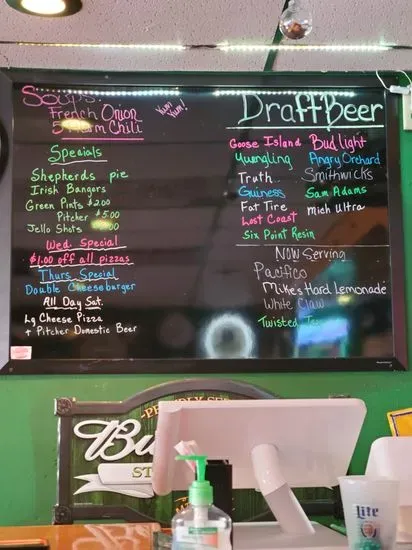 Soups:
French Onion
Yum Yum!
Chili
Specials
Shepherds pie
Irish Bangers
Green Pints $2.00
Pitcher $5.00
Jello Shots
Wed. Special
$1.00 off all pizzas
Thurs Special
Double Cheeseburger
All Day Sat.
Lg Cheese Pizza
+ Pitcher Domestic Beer
Draft Beer
Goose Island Bud light
Yuengling Angry Orchard
Truth Smithwicks
Guiness Sam Adams
Fat Tire Mich Ultra
Lost Coast
Six Point Resin
Now Serving
Pacifico
Mike's Hard Lemonade
White Claw
Twisted
Bu
ST
Lite